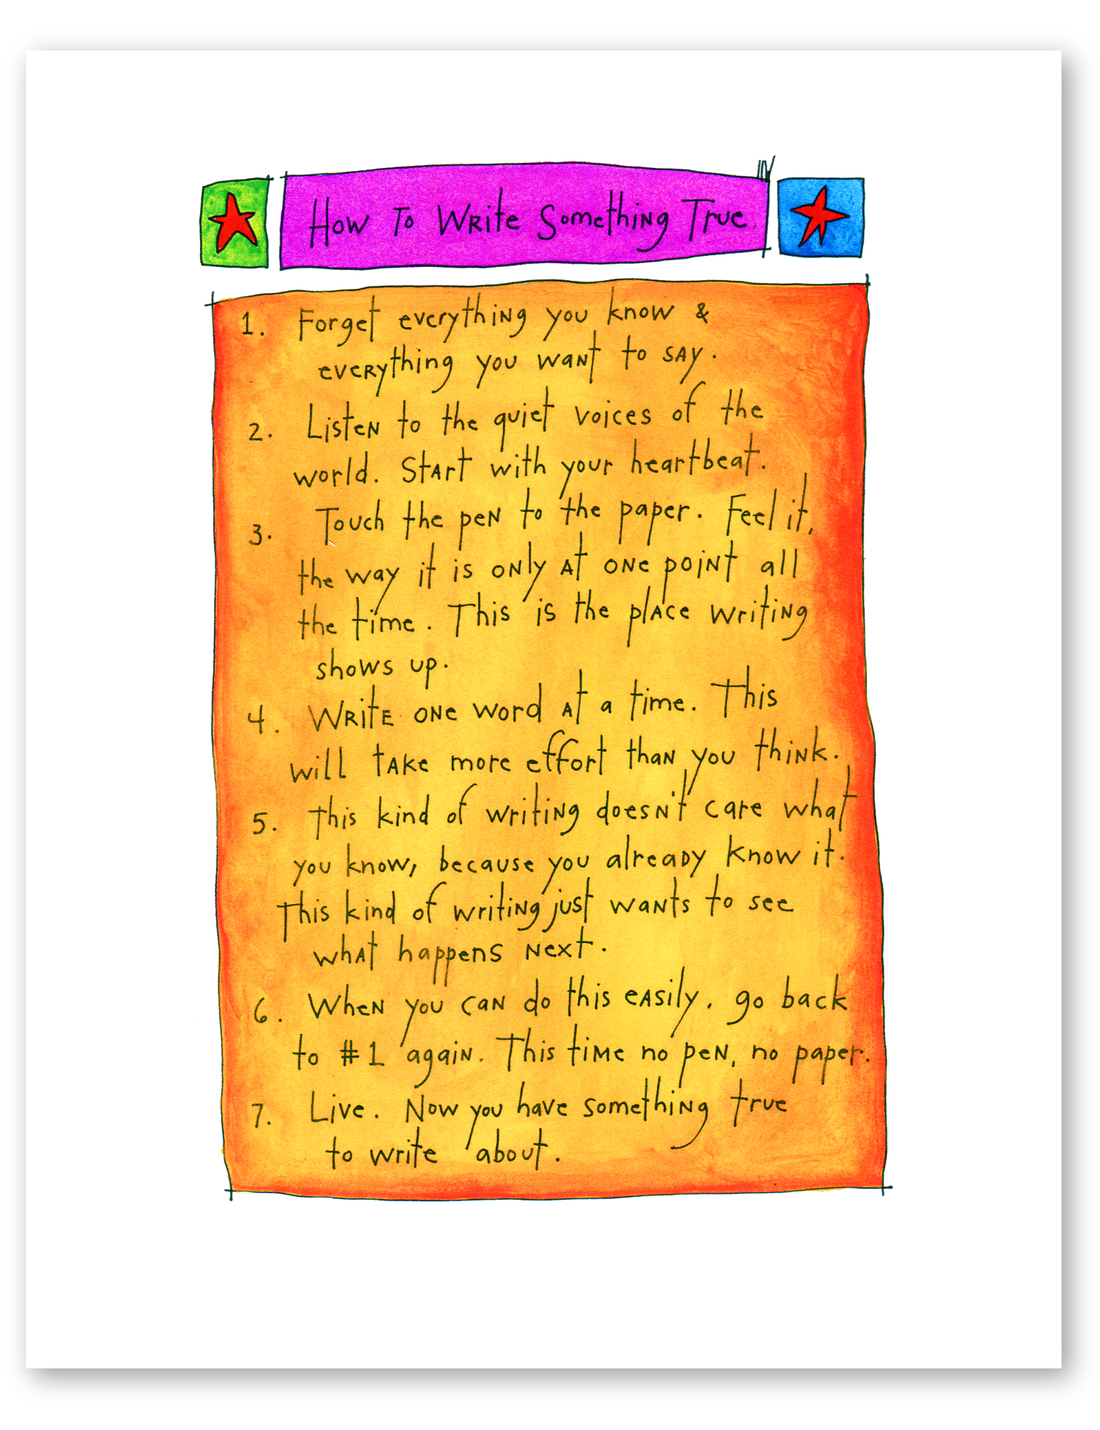 How To Write Something True
1. Forget everything you know &
everything you want to say.
2. Listen to the quiet voices of the
world. Start with your heartbeat.
3. Touch the pen to the paper. Feel it,
the way it is only at one point all
the time. This is the place writing
shows up.
4. Write one word at a time. This
will take more effort than you think.
5. This kind of writing doesn't care what
you know, because you already know it.
This kind of writing just wants to see
what happens next.
6. When you can do this easily, go back
to #1 again. This time no pen, no paper.
7. Live. Now you have something true
to write about.